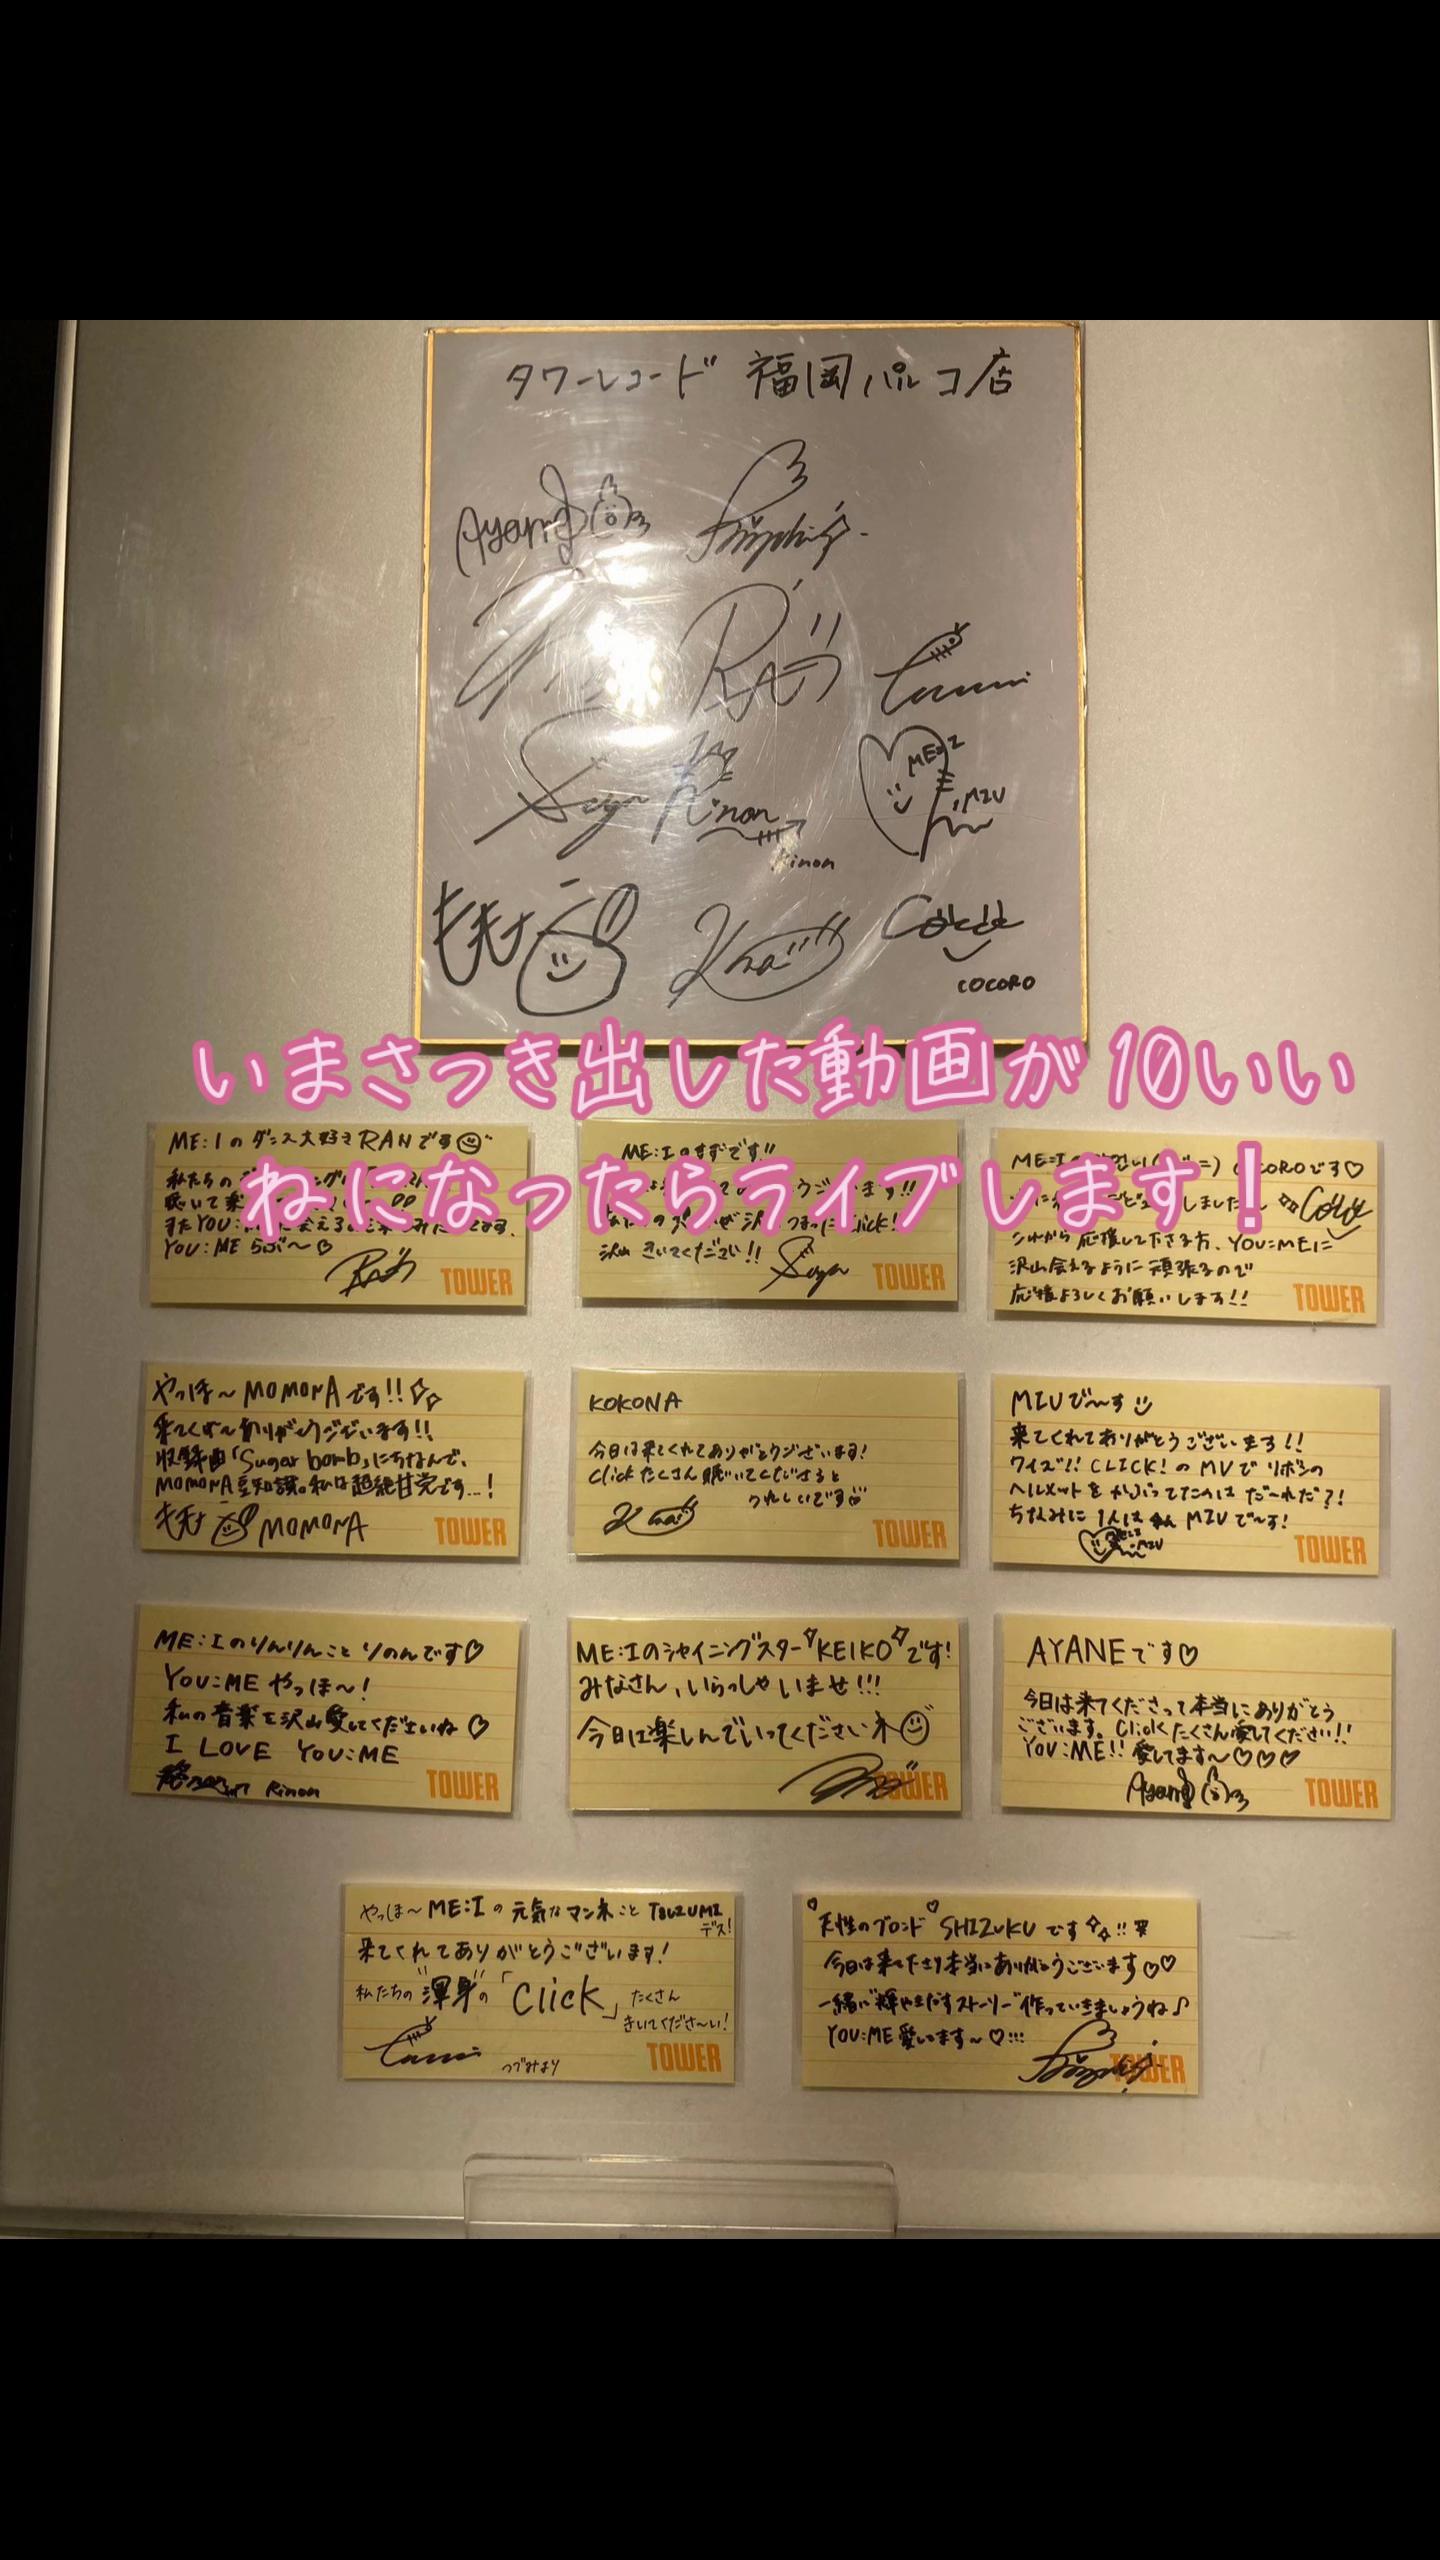 タワーレコード 福岡パルコ店
Ayane
RAN
Suzu
Rinon
Rinon
ME:I
MIU
ももな
COCORO
いまさっき出した動画が10いい
ねになったらライブします！
ME:Iのダンス大好きRANです
私たちの
聴いて
またYOU:
YOU:ME らぶ〜♡
TOWER
ME:Iのすずです!!
ございます!!
沢山きいてください!!
TOWER
ME:Iの COCOROです♡
しました
これから応援して下さる方、YOU:MEに
沢山会えるように頑張るので
応援よろしくお願いします!!
TOWER
やっほ〜MOMONAです!!
来てくれてありがとうございます!!
収録曲「Sugar bomb」にちなんで、
MOMONA豆知識。私は超絶甘党です...!
ももな MOMONA
TOWER
KOKONA
今日は来てくれてありがとうございます!
Clickたくさん聴いてくださると
うれしいです
TOWER
MIUで〜す
来てくれてありがとうございます!!
クイズ!! CLICK!のMVでリボンの
ヘルメットをかぶってたのはだ〜れだ?!
ちなみに1人は MIUで〜す!
MIU
TOWER
ME:Iのりんりんことりのんです♡
YOU:MEやっほ〜!
私の音楽を沢山愛してくださいね♡
I LOVE YOU:ME
Rinon
TOWER
ME:Iのシャイニングスター KEIKO です!
みなさん、いらっしゃいませ!!!
今日は楽しんでいってくださいネ
TOWER
AYANEです♡
今日は来てくださって本当にありがとう
ございます。Clickたくさん愛してください!!
YOU:ME!! 愛してます〜♡♡♡
Ayane
TOWER
やっほ〜ME:Iの元気なマンネこと TSUZUMI
デス!
来てくれてありがとうございます!
私たちの"渾身"の「Click」たくさん
きいてくださ〜い!
つづみより
TOWER
天性のブロンド SHIZUKUです
今日は来て下さり本当にありがとうございます♡♡
一緒に"輝やきだすストーリー"作っていきましょうね♪
YOU:ME愛してます〜♡!!!
TOWER